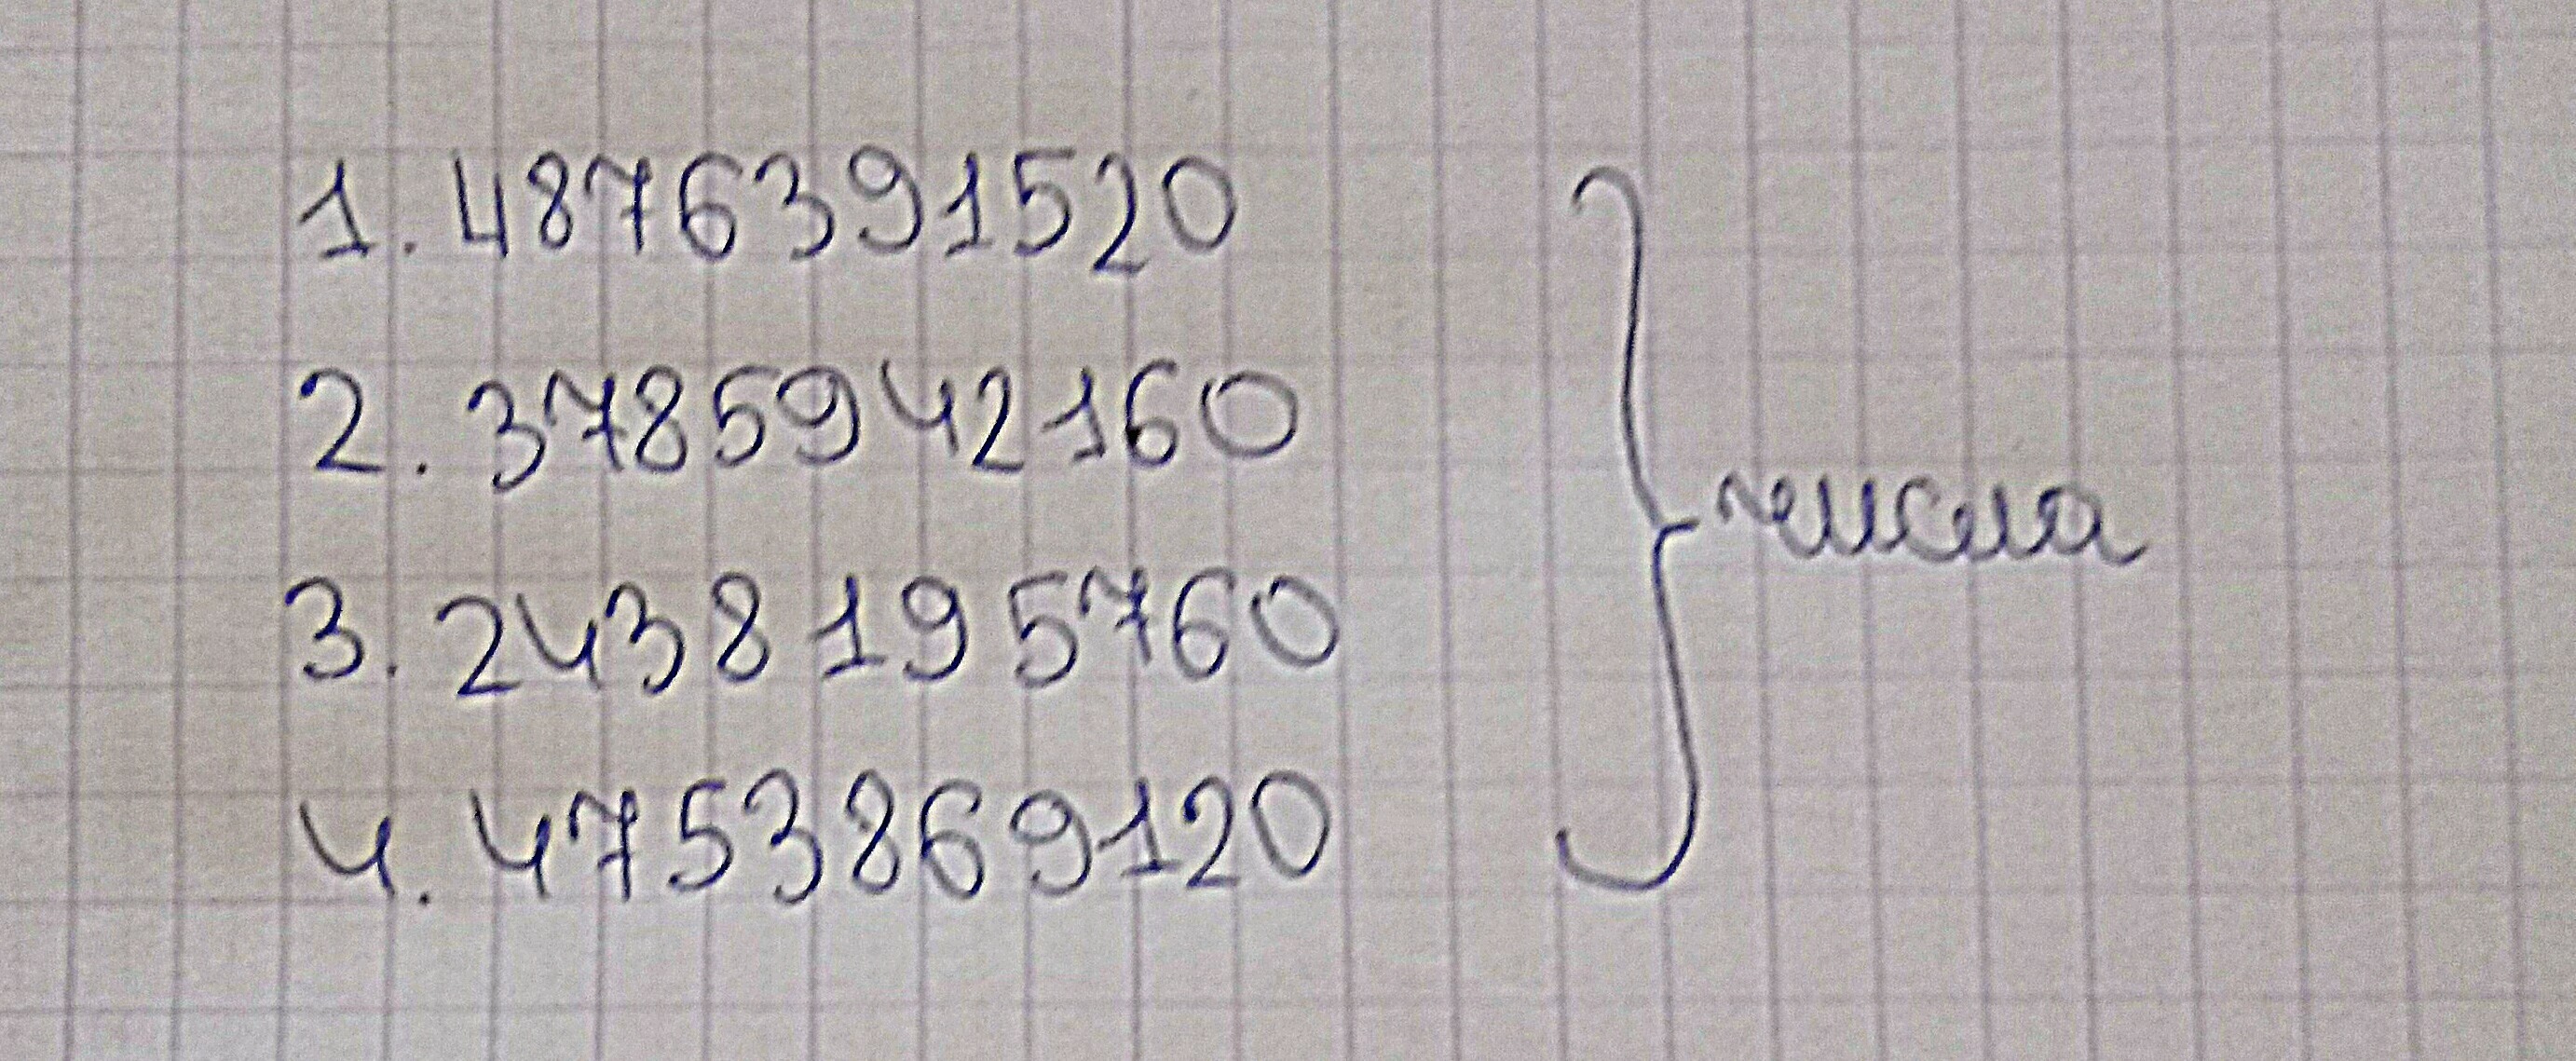 1. 4876391520
2. 3785942160
3. 2438195760
4. 4753869120
числа